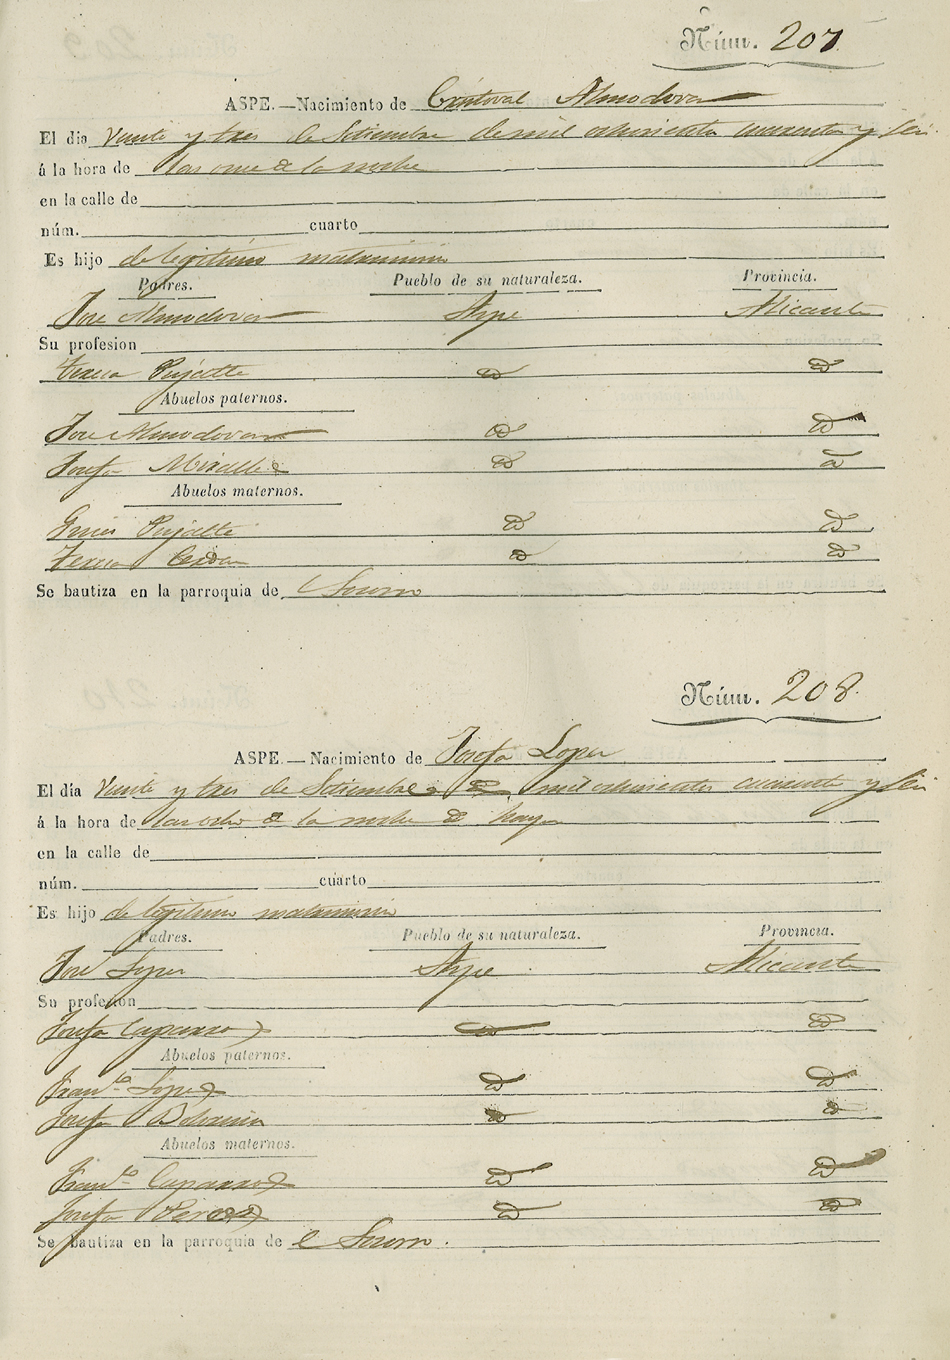 Núm. 207
ASPE.—Nacimiento de Cristoval Almodovar
El dia Veinte y tres de Setiembre de mil ochocientos cuarenta y seis
á la hora de las once de la noche
en la calle de
núm. cuarto
Es hijo de legitimo matrimonio
Padres. Pueblo de su naturaleza. Provincia.
Jose Almodovar Aspe Alicante
Su profesion
Teresa Pujalte Id Id
Abuelos paternos.
Jose Almodovar Id Id
Josefa Miralles Id Id
Abuelos maternos.
Gines Pujalte Id Id
Teresa Cerdan Id Id
Se bautiza en la parroquia de Socorro
Núm. 208.
ASPE.—Nacimiento de Josefa Lopez
El día Veinte y tres de Setiembre de mil ochocientos cuarenta y seis
á la hora de las ocho de la noche de
en la calle de
núm. cuarto
Es hijo de legitimo matrimonio
Padres. Pueblo de su naturaleza. Provincia.
José Lopez Aspe Alicante
Su profesion
Josefa Caparros Id Id
Abuelos paternos.
Franco Lopez Id Id
Josefa Id Id
Abuelos maternos.
Franco Caparros Id Id
Josefa Perez Id Id
Se bautiza en la parroquia de el Socorro.